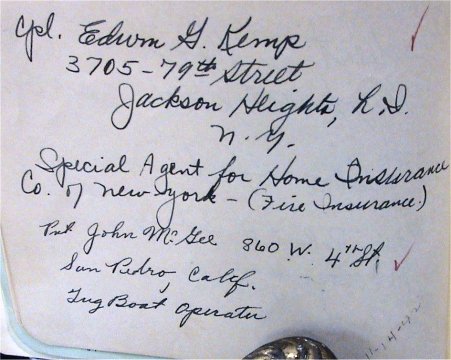 Cpl. Edwin G. Kemp
3705-79th Street
Jackson Heights, L.I.
N.Y.
Special Agent for Home Insurance
Co. of New York - (Fire Insurance.)
Pvt John McGee 360 W. 4th St.
San Pedro, Calif.
Tug Boat Operator